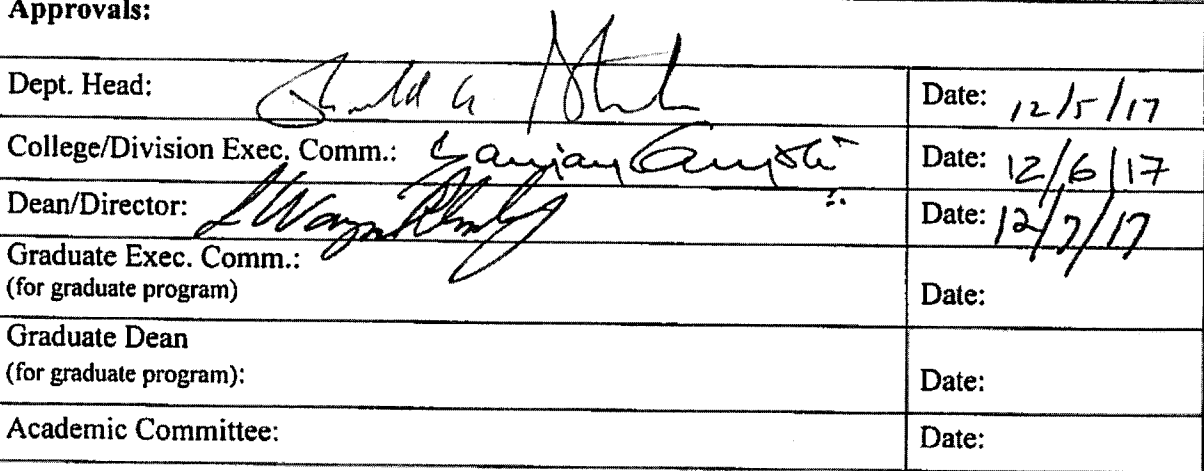 Approvals:
Dept. Head: Date: 12/5/17
College/Division Exec. Comm.: Sanjay Date: 12/6/17
Dean/Director: Date: 12/7/17
Graduate Exec. Comm.:
(for graduate program) Date:
Graduate Dean
(for graduate program): Date:
Academic Committee: Date: